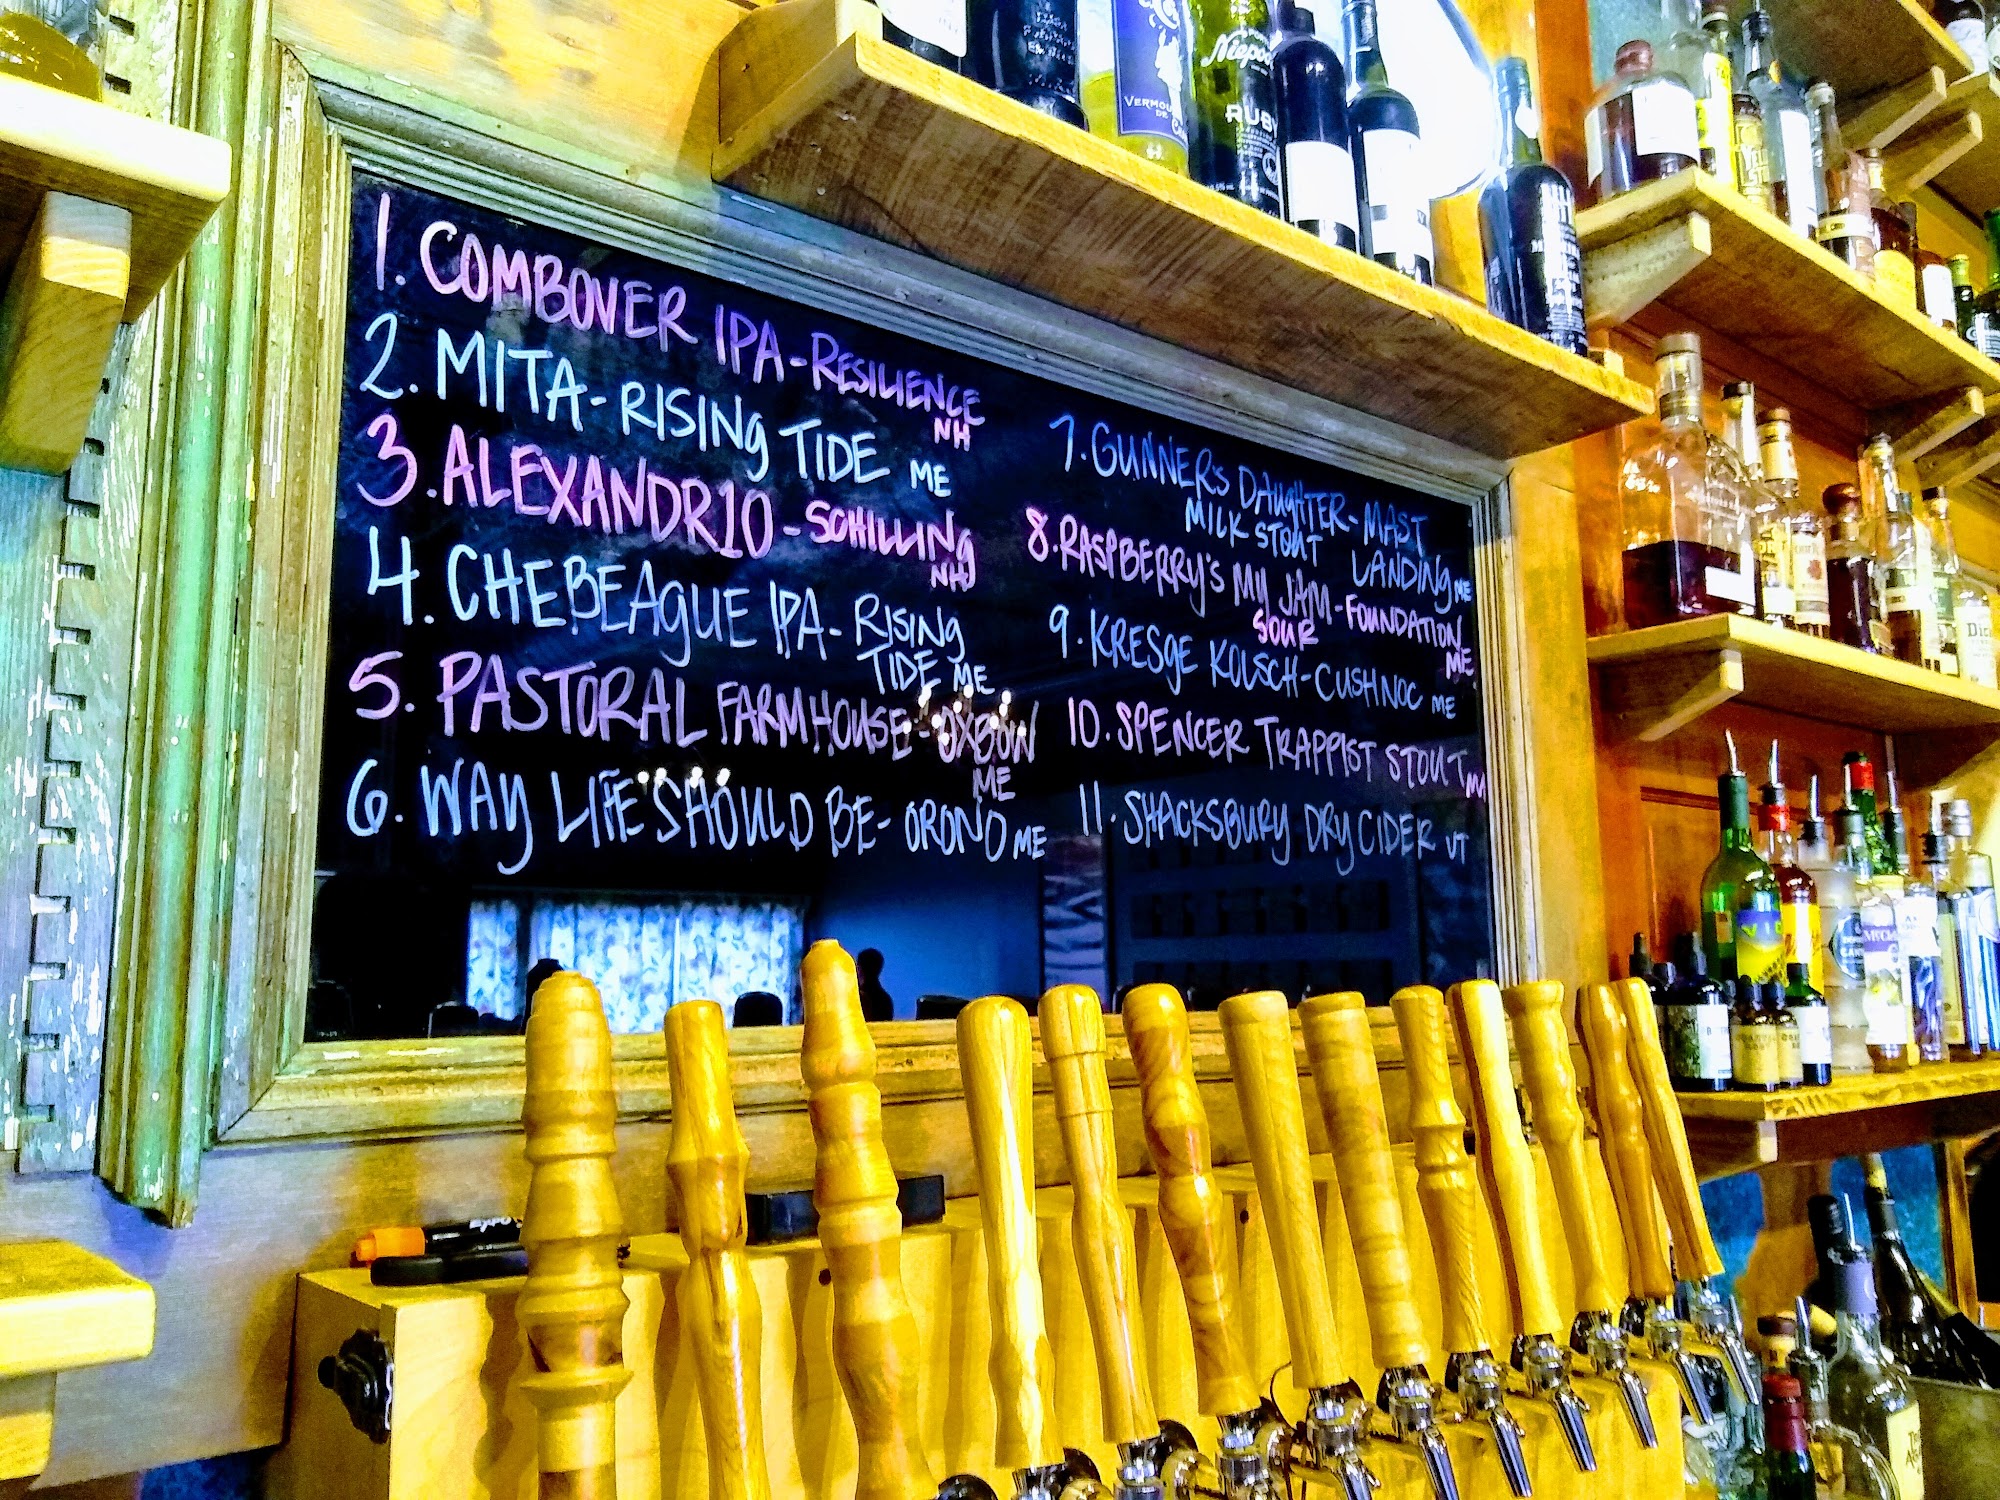 1. COMBOVER IPA - RESILIENCE
NH
2. MITA - RISING TIDE ME
3. ALEXANDR10 - SCHILLING
NH
4. CHEBEAGUE IPA - RISING
TIDE ME
5. PASTORAL FARMHOUSE - OXBOW
ME
6. WAY LIFE SHOULD BE - ORONO ME
7. GUNNER'S DAUGHTER - MAST
MILK STOUT LANDING ME
8. RASPBERRY'S MY JAM - FOUNDATION
SOUR ME
9. KRESGE KOLSCH - CUSHNOC ME
10. SPENCER TRAPPIST STOUT
11. SHACKSBURY DRY CIDER VT
RUBY
EXPO